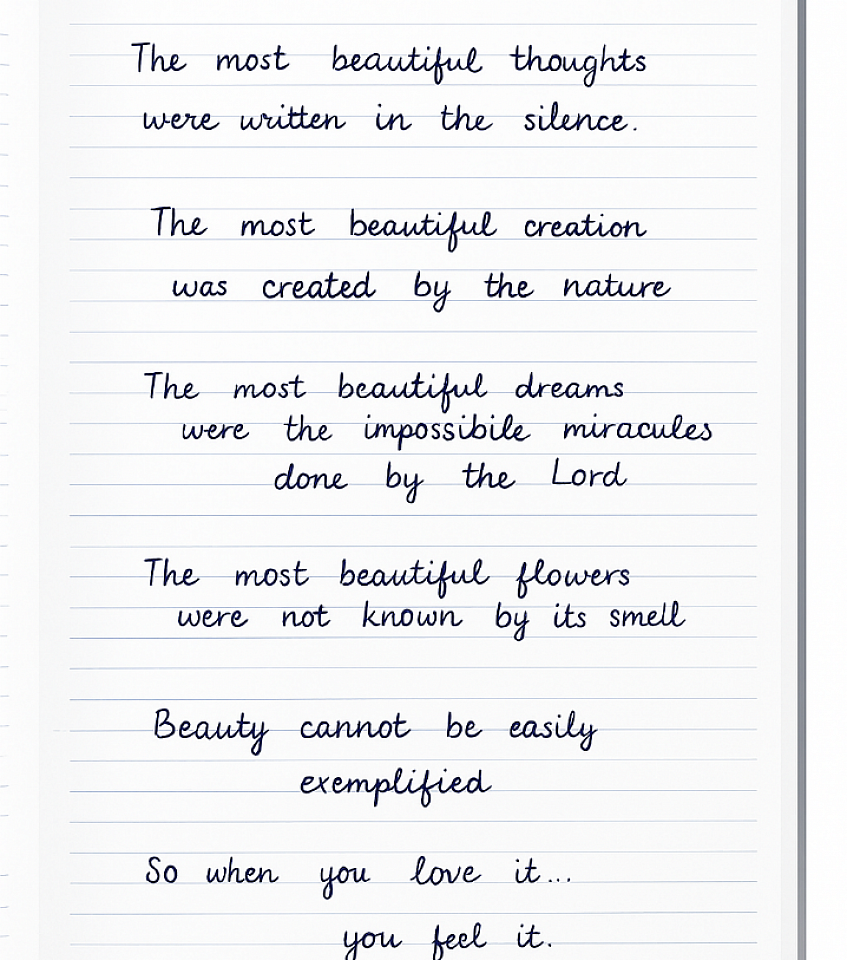 The most beautiful thoughts
were written in the silence.
The most beautiful creation
was created by the nature
The most beautiful dreams
were the impossibile miracules
done by the Lord
The most beautiful flowers
were not known by its smell
Beauty cannot be easily
exemplified
So when you love it...
you feel it.